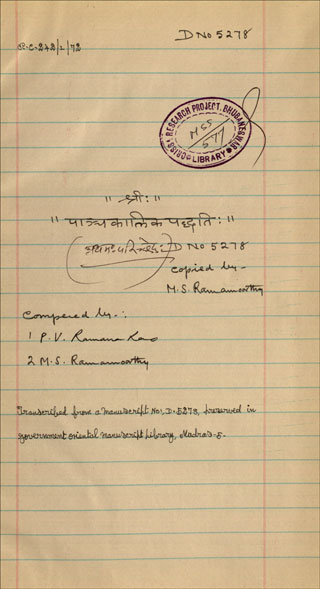 D No 5278
R.C. 242/1/72
ORISSA RESEARCH PROJECT, BHUBANESWAR
MSS
LIBRARY
॥ श्रीः ॥
॥ पाञ्चकालिकपद्धतिः ॥
D No 5278
Copied by -
M.S. Ramamoorthy
Compered by -:
1 P.V. Ramana Rao
2 M.S. Ramamoorthy
Transcribed from a manuscript No, D-5278, preserved in
government oriental manuscript Library, Madras-5.